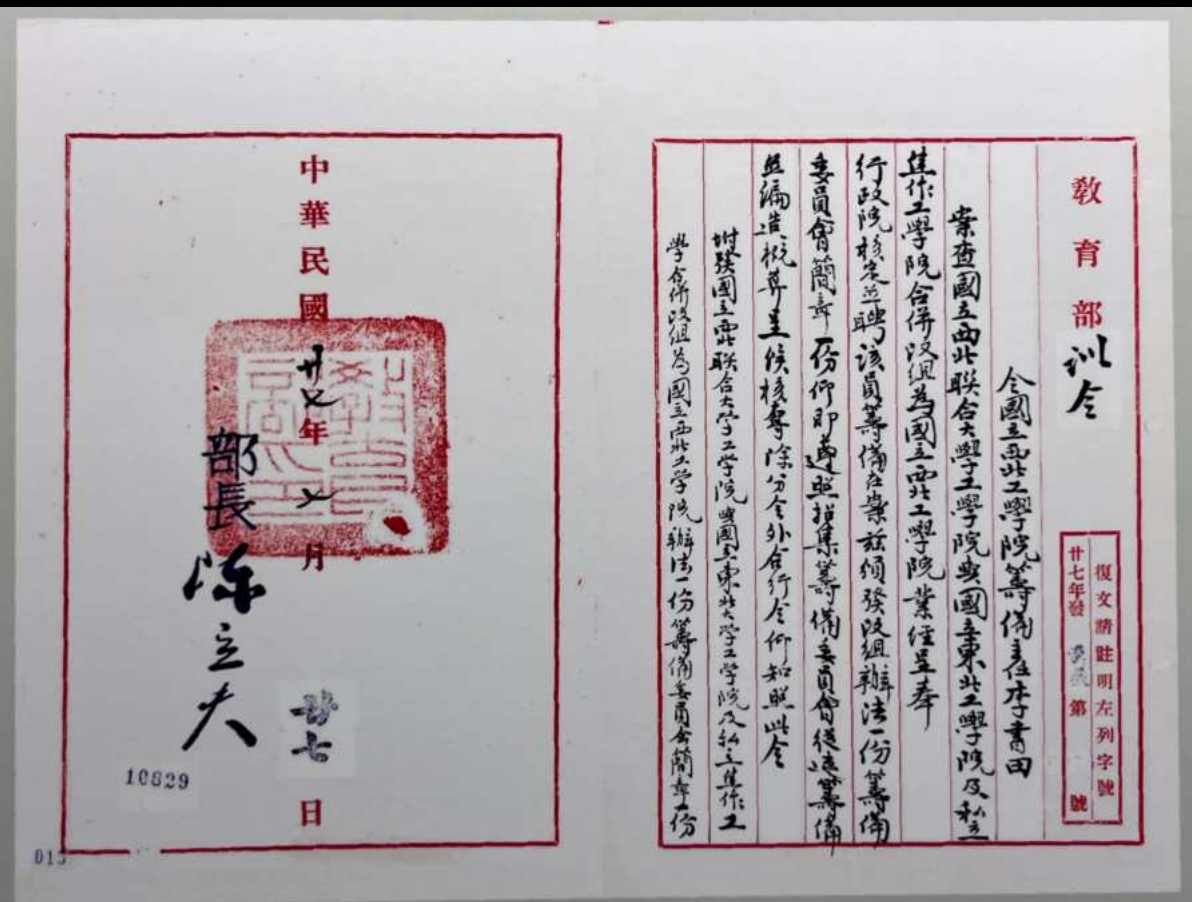 教育部訓令
復文請註明左列字號
廿七年發 第 號
令國立西北工學院籌備主任李書田
案查國立西北聯合大學工學院與國立東北工學院及私立
焦作工學院合併改組為國立西北工學院業經呈奉
行政院核定並聘該員籌備在案茲須發改組辦法一份籌備
委員會簡章一份仰即遵照招集籌備委員會從速籌備
並編造概算呈候核奪除分令外合行令仰知照此令
附發國立西北联合大学工学院與國立東北大学工学院及私立焦作工
學合併改組為國立西北工学院辦法一份籌備委員会簡章一份
中華民國廿七年七月廿七日
部長陳立夫
10829